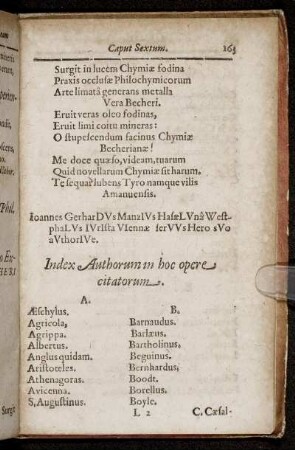 Caput Sextum. 163
Surgit in lucem Chymiæ fodina
Praxis occlusæ Philochymicorum
Arte limatâ generans metalla
Vera Becheri.
Eruit veras oleo fodinas,
Eruit limi coitu mineras:
O stupescendum facinus Chymiæ
Becherianæ!
Me doce quæso, videam, tuarum
Quid novellarum Chymiæ sit harum,
Te sequar lubens Tyro namque vilis
Amanuensis.
Ioannes GerharDVs ManzIVs HasæLVnâ West-
phaLVs IVrIsta VIennæ serVVs Hero sVo
aVthorIVe.
Index Authorum in hoc opere
citatorum.
A.
Æschylus,
Agricola,
Agrippa.
Albertus.
Anglus quidam.
Aristoteles.
Athenagoras.
Avicenna.
S. Augustinus.
B.
Barnaudus.
Barlæus.
Bartholinus,
Beguinus.
Bernhardus,
Boodt.
Borellus.
Boyle.
L 2 C. Cæsal-
Surgit